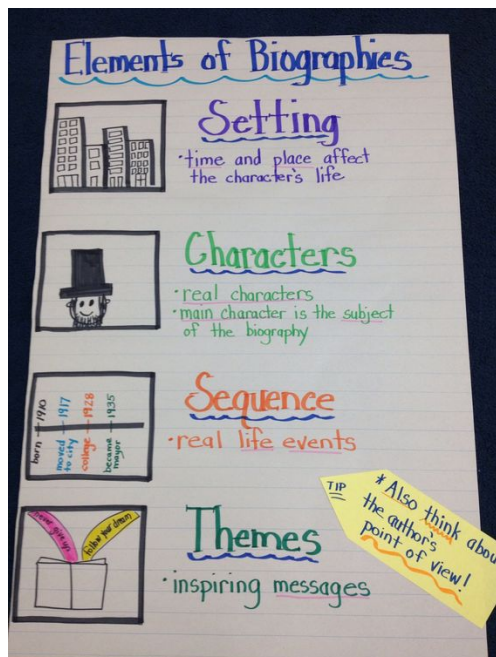 Elements of Biographies
Setting
•time and place affect
the character's life
Characters
•real characters
•main character is the subject
of the biography
born — 1910
moved
to city — 1917
college — 1928
became
mayor — 1935
Sequence
•real life events
TIP
* Also think abou
the author's
point of view!
never give up
follow your dream
Themes
•inspiring messages